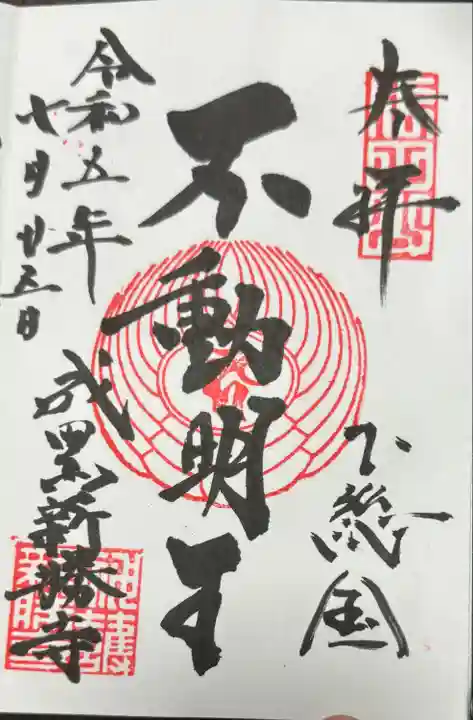 奉拝
下総国
不動明王
令和五年
七月廿五日
成田山新勝寺